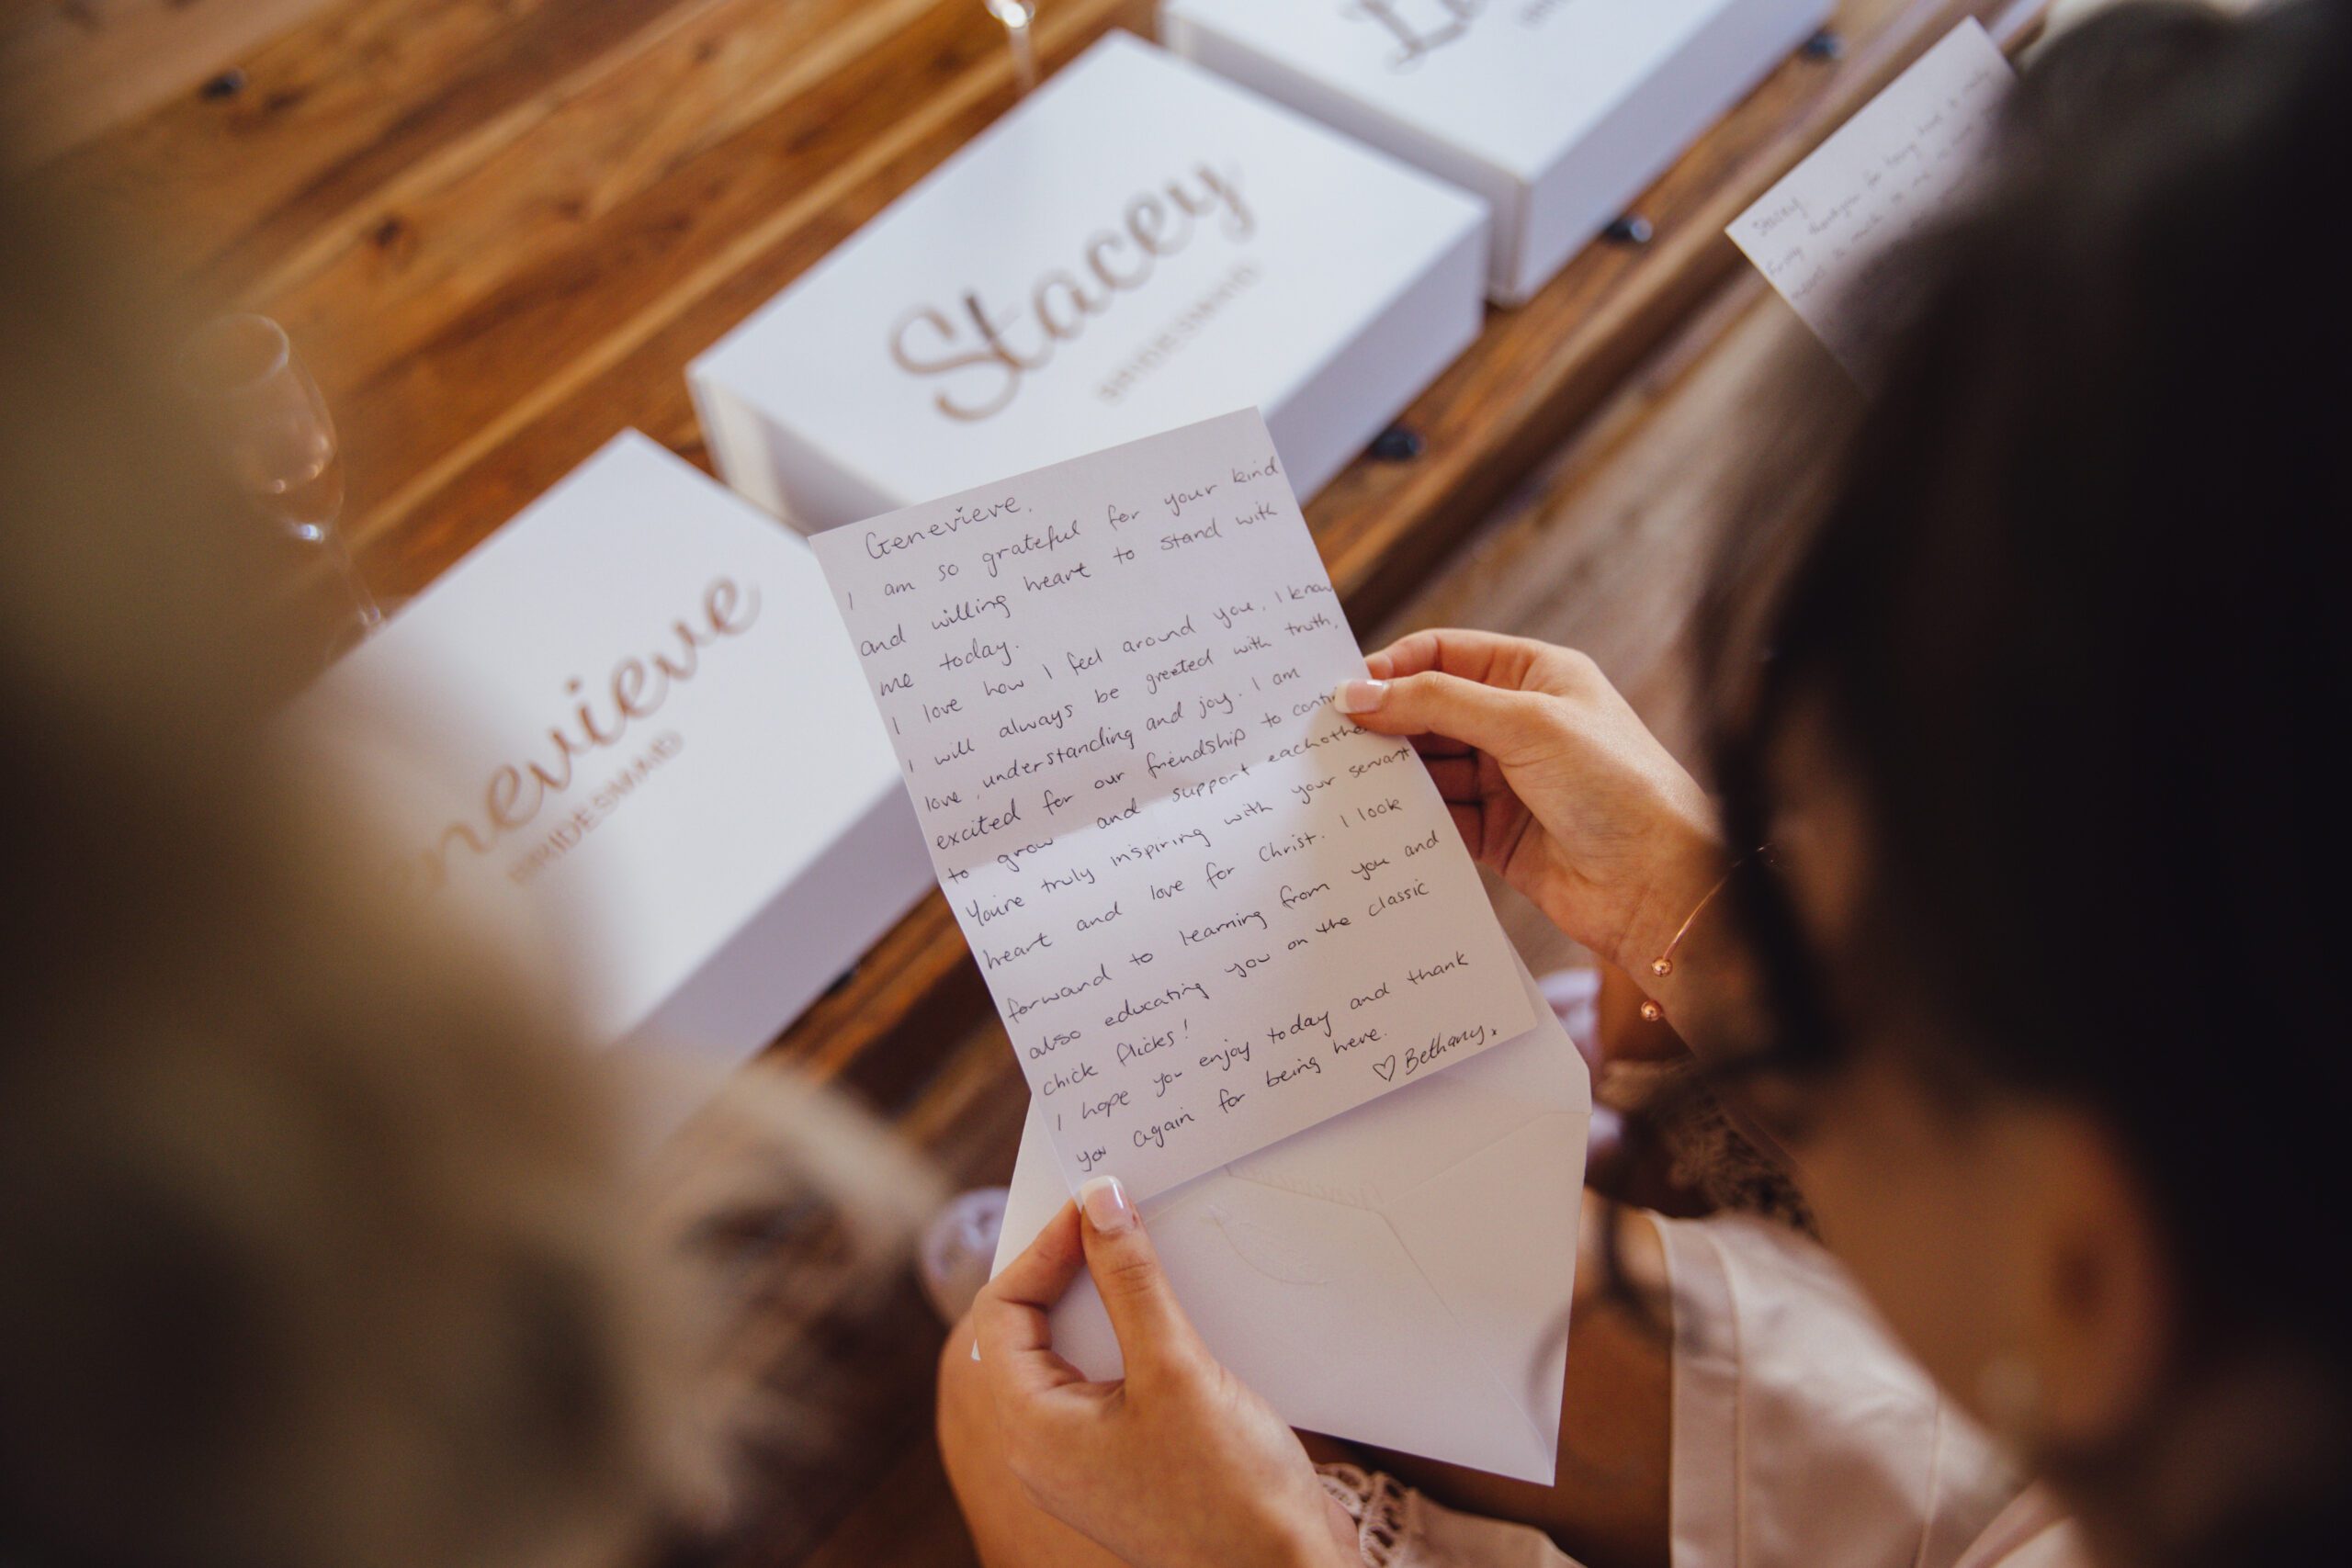 Stacey
BRIDESMAID
nevieve
BRIDESMAID
Stacey
Genevieve,
I am so grateful for your kind
and willing heart to stand with
me today.
I love how I feel around you, I know
I will always be greeted with truth,
love, understanding and joy. I am
excited for our friendship to contin
to grow and support eachother
You're truly inspiring with your servant
heart and love for Christ. I look
forward to learning from you and
also educating you on the classic
chick flicks!
I hope you enjoy today and thank
you again for being here.
♡ Bethany.x